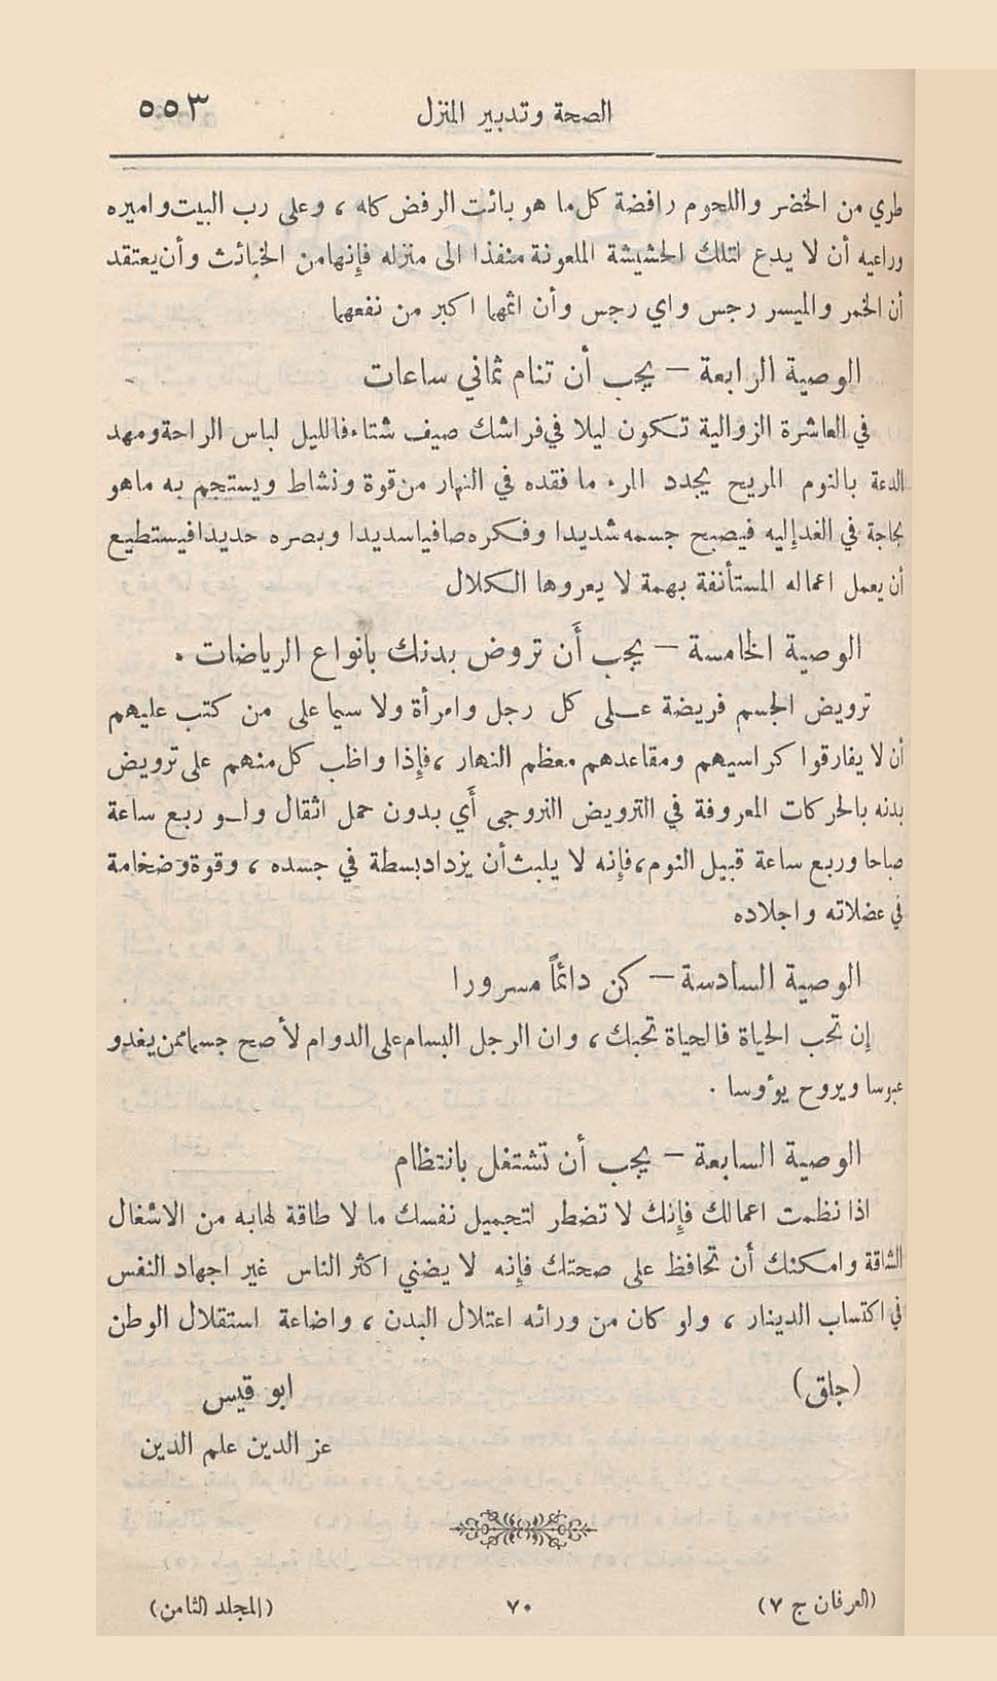 الصحة وتدبير المنزل ٥٥٣
طري من الخضر واللحوم رافضة كل ما هو بائت الرفض كله ، وعلى رب البيت واميره
وراعيه أن لا يدع لتلك الحشيشة الملعونة منفذا الى منزله فإنها من الخبائث وأن يعتقد
أن الخمر والميسر رجس واي رجس وأن اثمها اكبر من نفعها
الوصية الرابعة – يجب أن تنام ثماني ساعات
في العاشرة الزوالية تكون ليلا في فراشك صيف شتاء فالليل لباس الراحة ومهد
الدعة بالنوم المريح يجدد المرء ما فقده في النهار من قوة ونشاط ويستجم به ماهو
بحاجة في الغد إليه فيصبح جسمه شديدا وفكره صافيا سديدا وبصره حديدا فيستطيع
أن يعمل اعماله المستأنفة بهمة لا يعروها الكلال
الوصية الخامسة – يجب أن تروض بدنك بانواع الرياضات .
ترويض الجسم فريضة عـلى كل رجل وامرأة ولا سيما على من كتب عليهم
أن لا يفارقوا كراسيهم ومقاعدهم معظم النهار ، فإذا واظب كل منهم على ترويض
بدنه بالحركات المعروفة في الترويض النروجي أي بدون حمل اثقال ولـو ربع ساعة
صباحا وربع ساعة قبيل النوم ، فإنه لا يلبث أن يزداد بسطة في جسده ، وقوة وضخامة
في عضلاته واجلاده
الوصية السادسة – كن دائماً مسرورا
إن تحب الحياة فالحياة تحبك ، وان الرجل البسام على الدوام لأصح جسما ممن يغدو
عبوسا ويروح يؤوسا .
الوصية السابعة – يجب أن تشتغل بانتظام
اذا نظمت اعمالك فإنك لا تضطر لتحميل نفسك ما لا طاقة لها به من الاشغال
الشاقة وامكنك أن تحافظ على صحتك فإنه لا يضني اكثر الناس غير اجهاد النفس
في اكتساب الدينار ، ولو كان من ورائه اعتلال البدن ، واضاعة استقلال الوطن
(جلق) ابو قيس
عز الدين علم الدين
(العرفان ج ٧) ٧٠ (المجلد الثامن)